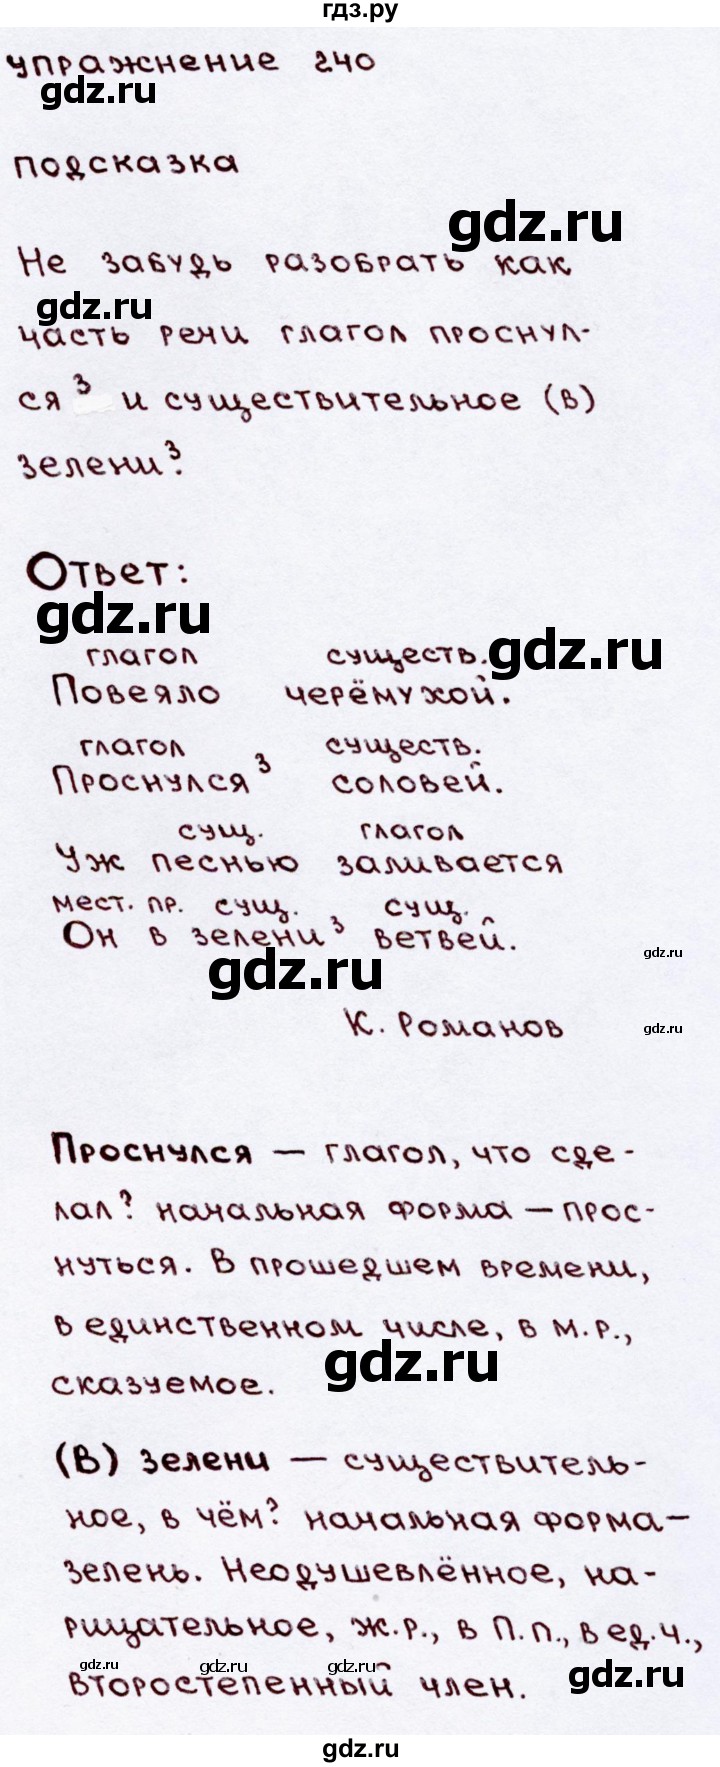 гдз.ру
упражнение 240
gdz.ru
подсказка
gdz.ru
Не забудь разобрать как
gdz.ru
часть речи глагол проснул-
ся³ и существительное (в)
зелени³.
Ответ:
gdz.ru
gdz.ru
глагол существ.
Повеяло черёмухой.
глагол существ.
Проснулся³ соловей.
сущ. глагол
Уж песнью заливается
мест. пр. сущ. сущ.
Он в зелени³ ветвей.
gdz.ru
gdz.ru
К. Романов
gdz.ru
Проснулся — глагол, что сде-
лал? начальная форма — прос-
нуться. В прошедшем времени,
в единственном числе, в м.р.,
gdz.ru
сказуемое.
(В) зелени — существитель-
ное, в чём? начальная форма —
зелень. Неодушевлённое, на-
рицательное, ж.р., в П.п., в ед.ч.,
gdz.ru gdz.ru gdz.ru gdz.ru
второстепенный член.
gdz.ru